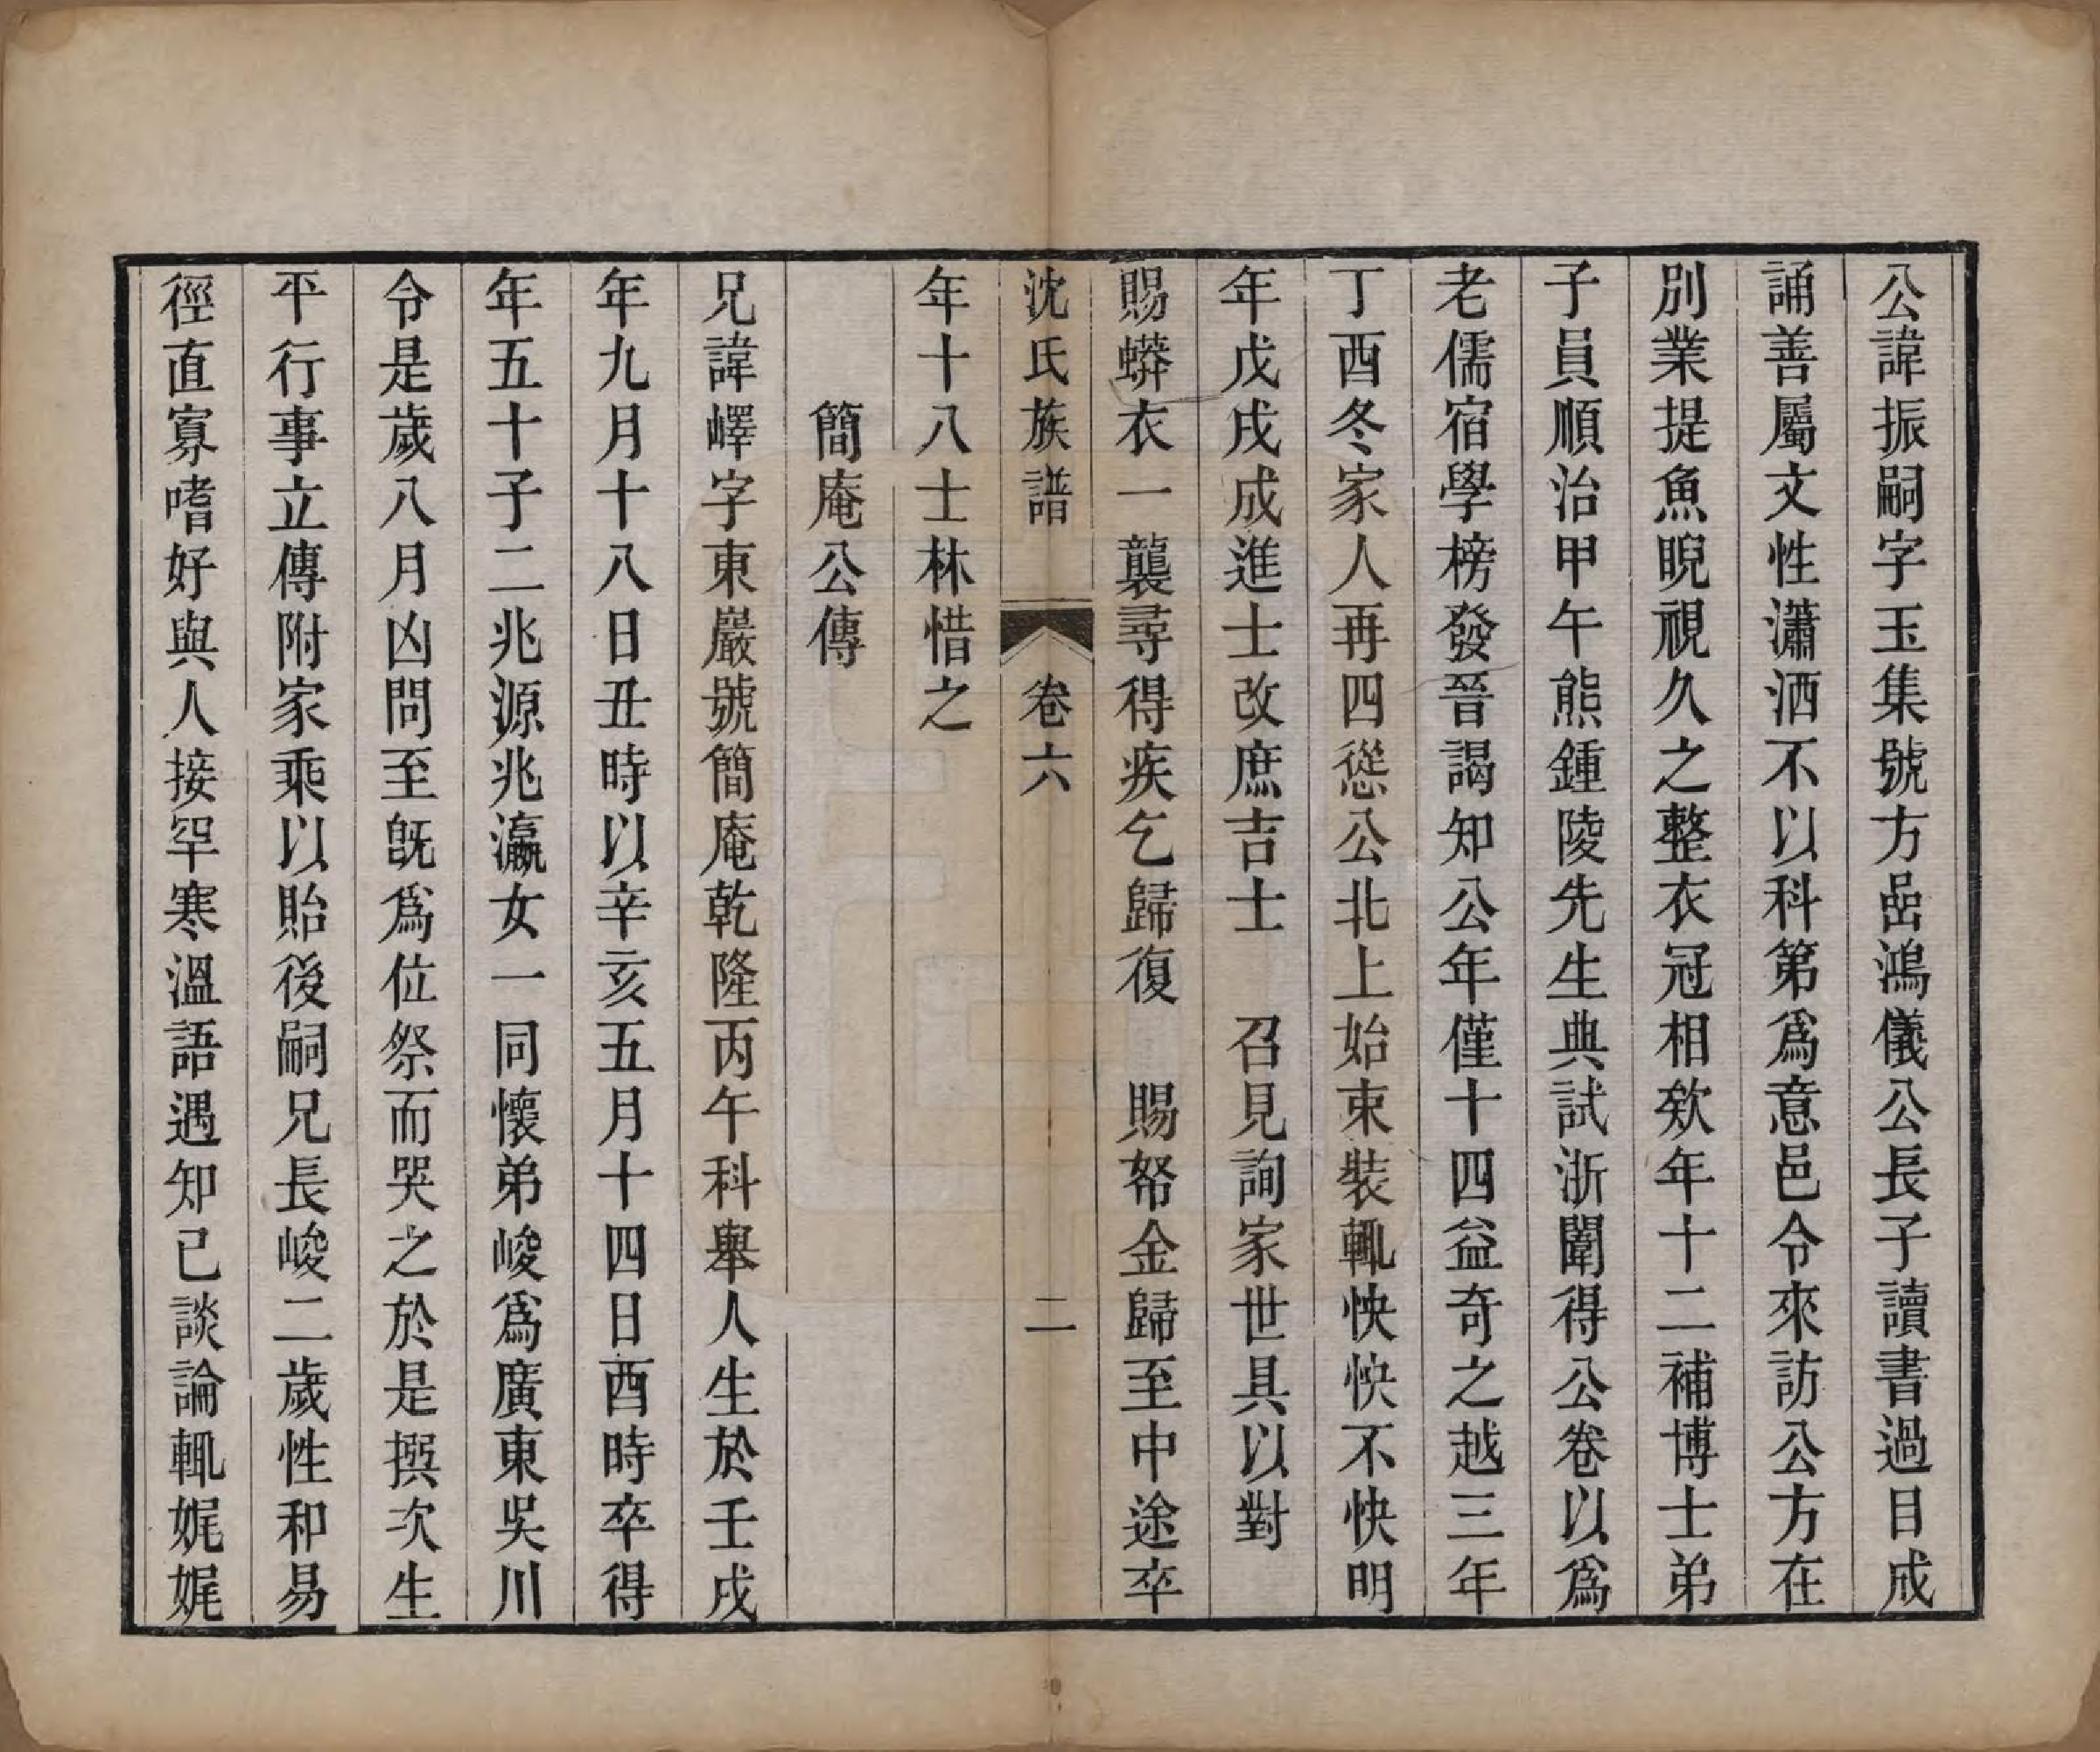 公諱振嗣字玉集號方嵒鴻儀公長子讀書過目成
誦善屬文性瀟洒不以科第爲意邑令來訪公方在
別業提魚睨視久之整衣冠相欸年十二補博士弟
子員順治甲午熊鍾陵先生典試浙闈得公卷以爲
老儒宿學榜發晉謁知公年僅十四益奇之越三年
丁酉冬家人再四慫公北上始束裝輒怏怏不快明
年戊戌成進士改庶吉士　召見詢家世具以對
賜蟒衣一襲尋得疾乞歸復　賜帑金歸至中途卒
沈氏族譜　卷六　二
年十八士林惜之
簡庵公傳
兄諱嶧字東巖號簡庵乾隆丙午科舉人生於壬戌
年九月十八日丑時以辛亥五月十四日酉時卒得
年五十子二兆源兆瀛女一同懷弟峻爲廣東吳川
令是歲八月凶問至旣爲位祭而哭之於是撰次生
平行事立傳附家乘以貽後嗣兄長峻二歲性和易
徑直寡嗜好與人接罕寒溫語遇知己談論輒娓娓